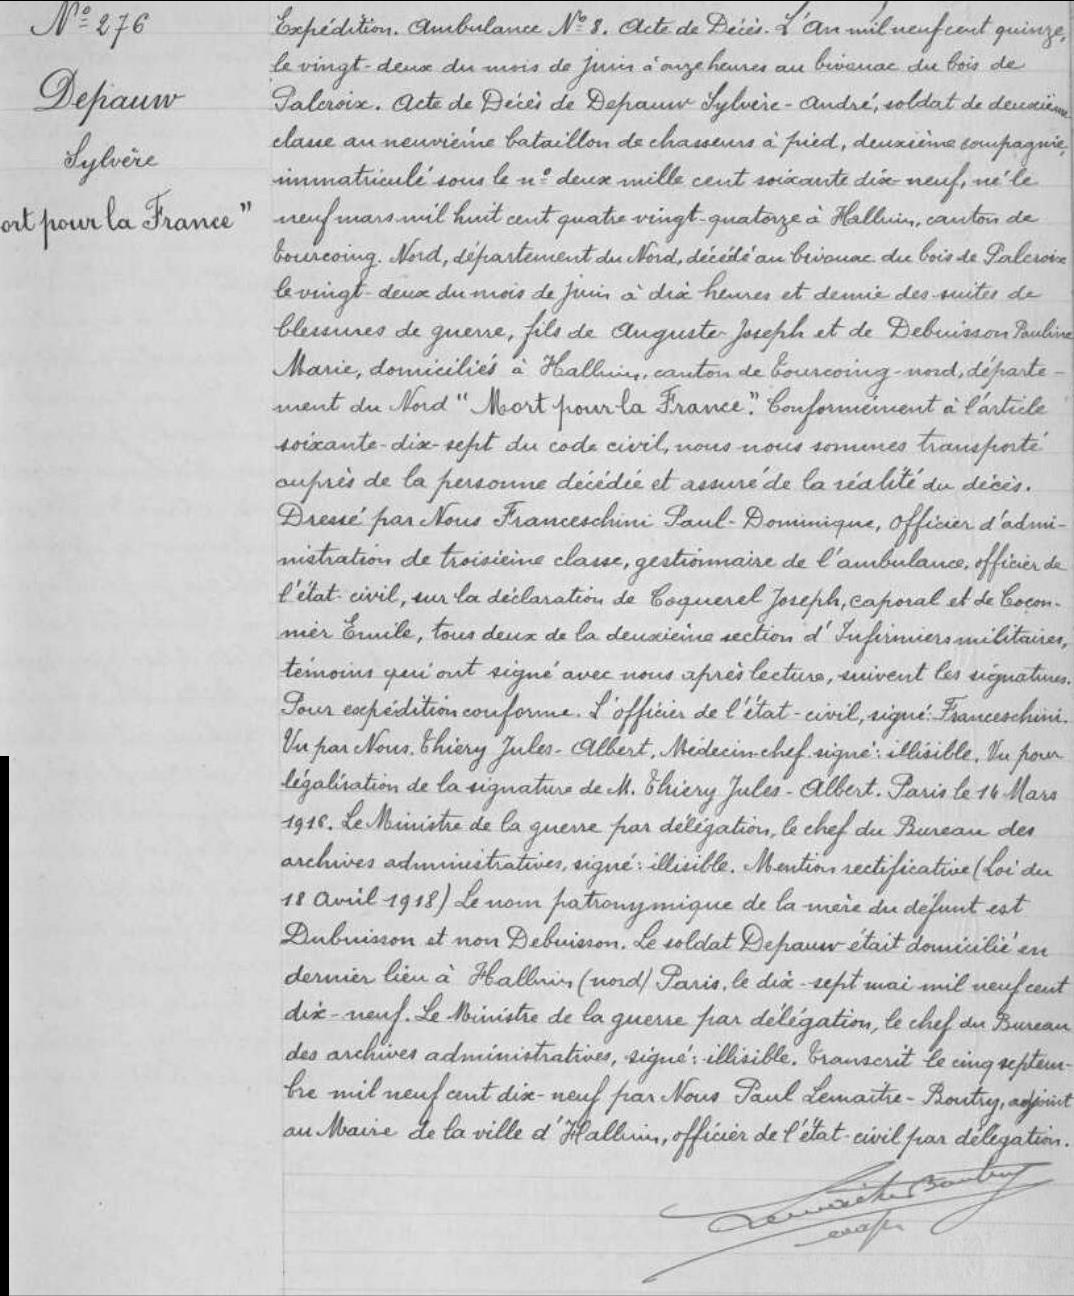 Nº 276
Depauw
Sylvère
ort pour la France"
Expédition. Ambulance Nº 8. Acte de Décès. L'An mil neuf cent quinze,
le vingt-deux du mois de juin à onze heures au bivouac du bois de
Palcroix. Acte de Décès de Depauw Sylvère-André, soldat de deuxième
classe au neuvième bataillon de chasseurs à pied, deuxième compagnie,
immatriculé sous le nº deux mille cent soixante dix-neuf, né le
neuf mars mil huit cent quatre vingt-quatorze à Halluin, canton de
Tourcoing. Nord, département du Nord, décédé au bivouac du bois de Palcroix
le vingt-deux du mois de juin à dix heures et demie des suites de
blessures de guerre, fils de Auguste-Joseph et de Debuisson Pauline
Marie, domiciliés à Halluin, canton de Tourcoing-nord, départe-
ment du Nord "Mort pour la France". Conformément à l'article
soixante-dix-sept du code civil, nous nous sommes transporté
auprès de la personne décédée et assuré de la réalité du décès.
Dressé par Nous Franceschini Paul-Dominique, Officier d'admi-
nistration de troisième classe, gestionnaire de l'ambulance, officier de
l'état-civil, sur la déclaration de Coquerel Joseph, caporal et de Cocon-
nier Emile, tous deux de la deuxième section d'Infirmiers militaires,
témoins qui ont signé avec nous après lecture, suivent les signatures.
Pour expédition conforme. L'officier de l'état-civil, signé: Franceschini.
Vu par Nous. Thiéry Jules-Albert, Médecin-chef signé: illisible. Vu pour
légalisation de la signature de M. Thiéry Jules-Albert. Paris le 14 Mars
1916. Le Ministre de la guerre par délégation, le chef du Bureau des
archives administratives, signé: illisible. Mention rectificative (Loi du
18 Avril 1918) Le nom patronymique de la mère du défunt est
Dubuisson et non Debuisson. Le soldat Depauw était domicilié en
dernier lieu à Halluin (nord) Paris, le dix-sept mai mil neuf cent
dix-neuf. Le Ministre de la guerre par délégation, le chef du Bureau
des archives administratives, signé: illisible. Transcrit le cinq septem-
bre mil neuf cent dix-neuf par Nous Paul Lemaitre-Boutry, adjoint
au Maire de la ville d'Halluin, officier de l'état-civil par délégation.
Lemaitre Boutry